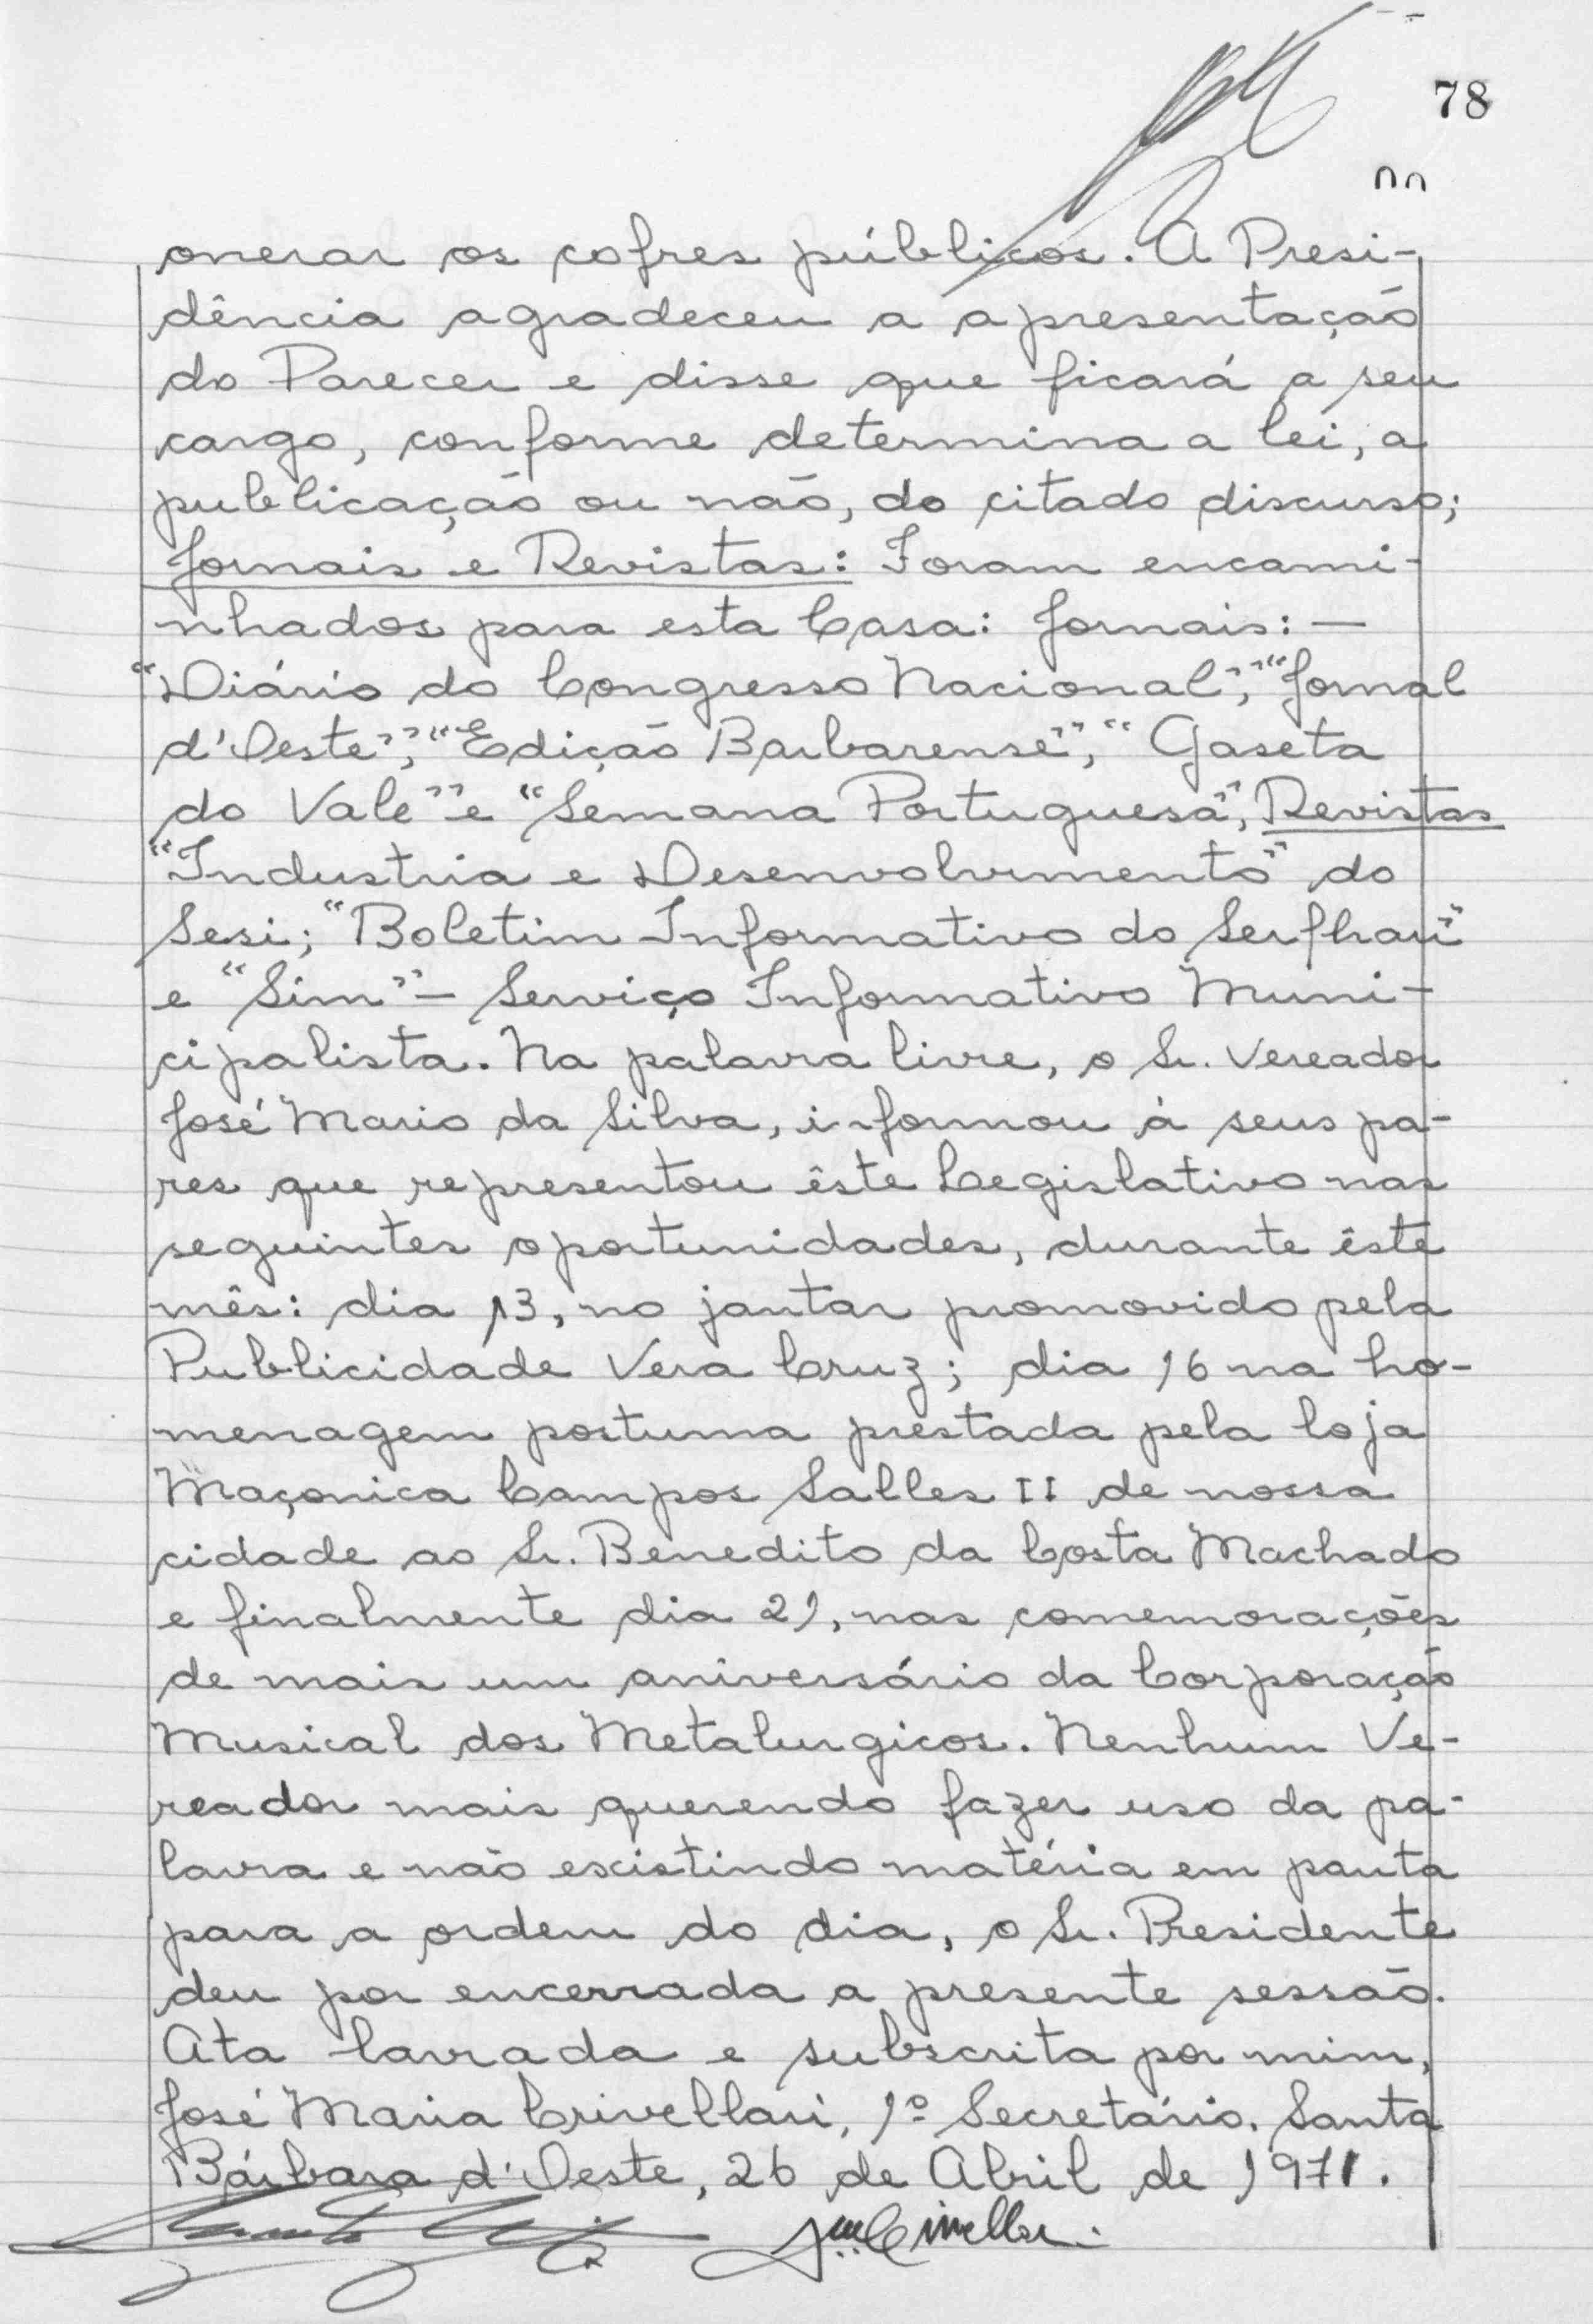 78
onerar os cofres públicos. A Presi-
dência agradeceu a apresentação
do Parecer e disse que ficará a seu
cargo, conforme determina a lei, a
publicação ou não, do citado discurso;
Jornais e Revistas: Foram encami-
nhados para esta Casa: Jornais: —
"Diário do Congresso Nacional", "Jornal
d'Oeste", "Edição Barbarense", "Gaseta
do Vale" e "Semana Portuguesa", Revistas
"Industria e Desenvolvimento" do
Sesi; "Boletim Informativo do Serfhau"
e "Sim" — Serviço Informativo Muni-
cipalista. Na palavra livre, o Sr. Vereador
José Maria da Silva, informou à seus pa-
res que representou êste Legislativo nas
seguintes oportunidades, durante êste
mês: dia 13, no jantar promovido pela
Publicidade Vera Cruz; dia 16 na ho-
menagem postuma prestada pela loja
Maçonica Campos Salles II de nossa
cidade ao Sr. Benedito da Costa Machado
e finalmente dia 21, nas comemorações
de mais um aniversário da Corporação
Musical dos Metalurgicos. Nenhum Ve-
reador mais querendo fazer uso da pa-
lavra e não existindo matéria em pauta
para a ordem do dia, o Sr. Presidente
deu por encerrada a presente sessão.
Ata lavrada e subscrita por mim,
José Maria Crivellari, 1º Secretário. Santa
Bárbara d'Oeste, 26 de Abril de 1971.